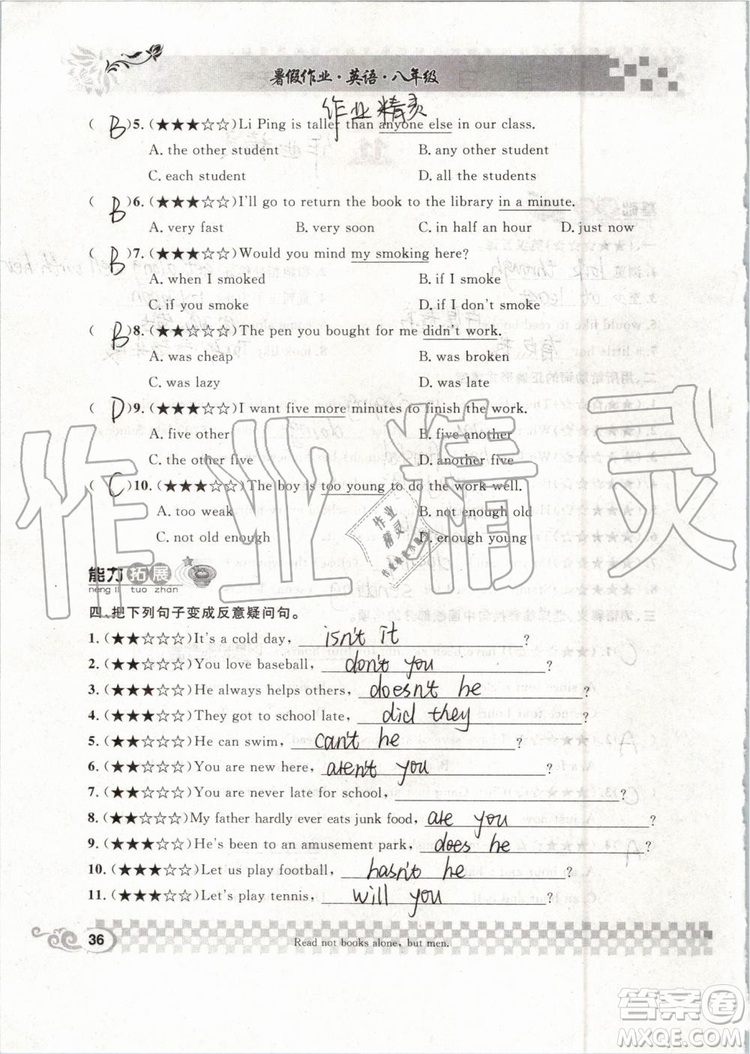 暑假作业·英语·八年级
作业精灵
( B )5. (★★★☆☆)Li Ping is taller than anyone else in our class.
A. the other student B. any other student
C. each student D. all the students
( B )6. (★★★☆☆)I'll go to return the book to the library in a minute.
A. very fast B. very soon C. in half an hour D. just now
( B )7. (★★★☆☆)Would you mind my smoking here?
A. when I smoked B. if I smoke
C. if you smoke D. if I don't smoke
( B )8. (★★★☆☆)The pen you bought for me didn't work.
A. was cheap B. was broken
C. was lazy D. was late
( D )9. (★★★☆☆)I want five more minutes to finish the work.
A. five other B. five another
C. the other five D. another five
( C )10. (★★★☆☆)The boy is too young to do the work well.
A. too weak B. not enough old
C. not old enough D. enough old
能力拓展
neng li tuo zhan
四、把下列句子变成反意疑问句。
1. (★★☆☆☆)It's a cold day, isn't it ?
2. (★★☆☆☆)You love baseball, don't you ?
3. (★★★☆☆)He always helps others, doesn't he ?
4. (★★★☆☆)They got to school late, did they ?
5. (★★☆☆☆)He can swim, can't he ?
6. (★★☆☆☆)You are new here, aren't you ?
7. (★★☆☆☆)You are never late for school, ?
8. (★★☆☆☆)My father hardly ever eats junk food, are you ?
9. (★★★☆☆)He's been to an amusement park, does he ?
10. (★★☆☆☆)Let us play football, hasn't he ?
11. (★★☆☆☆)Let's play tennis, will you ?
36
Read not books alone, but men.
作业精灵
作业精灵
答案圈
MXQE.COM